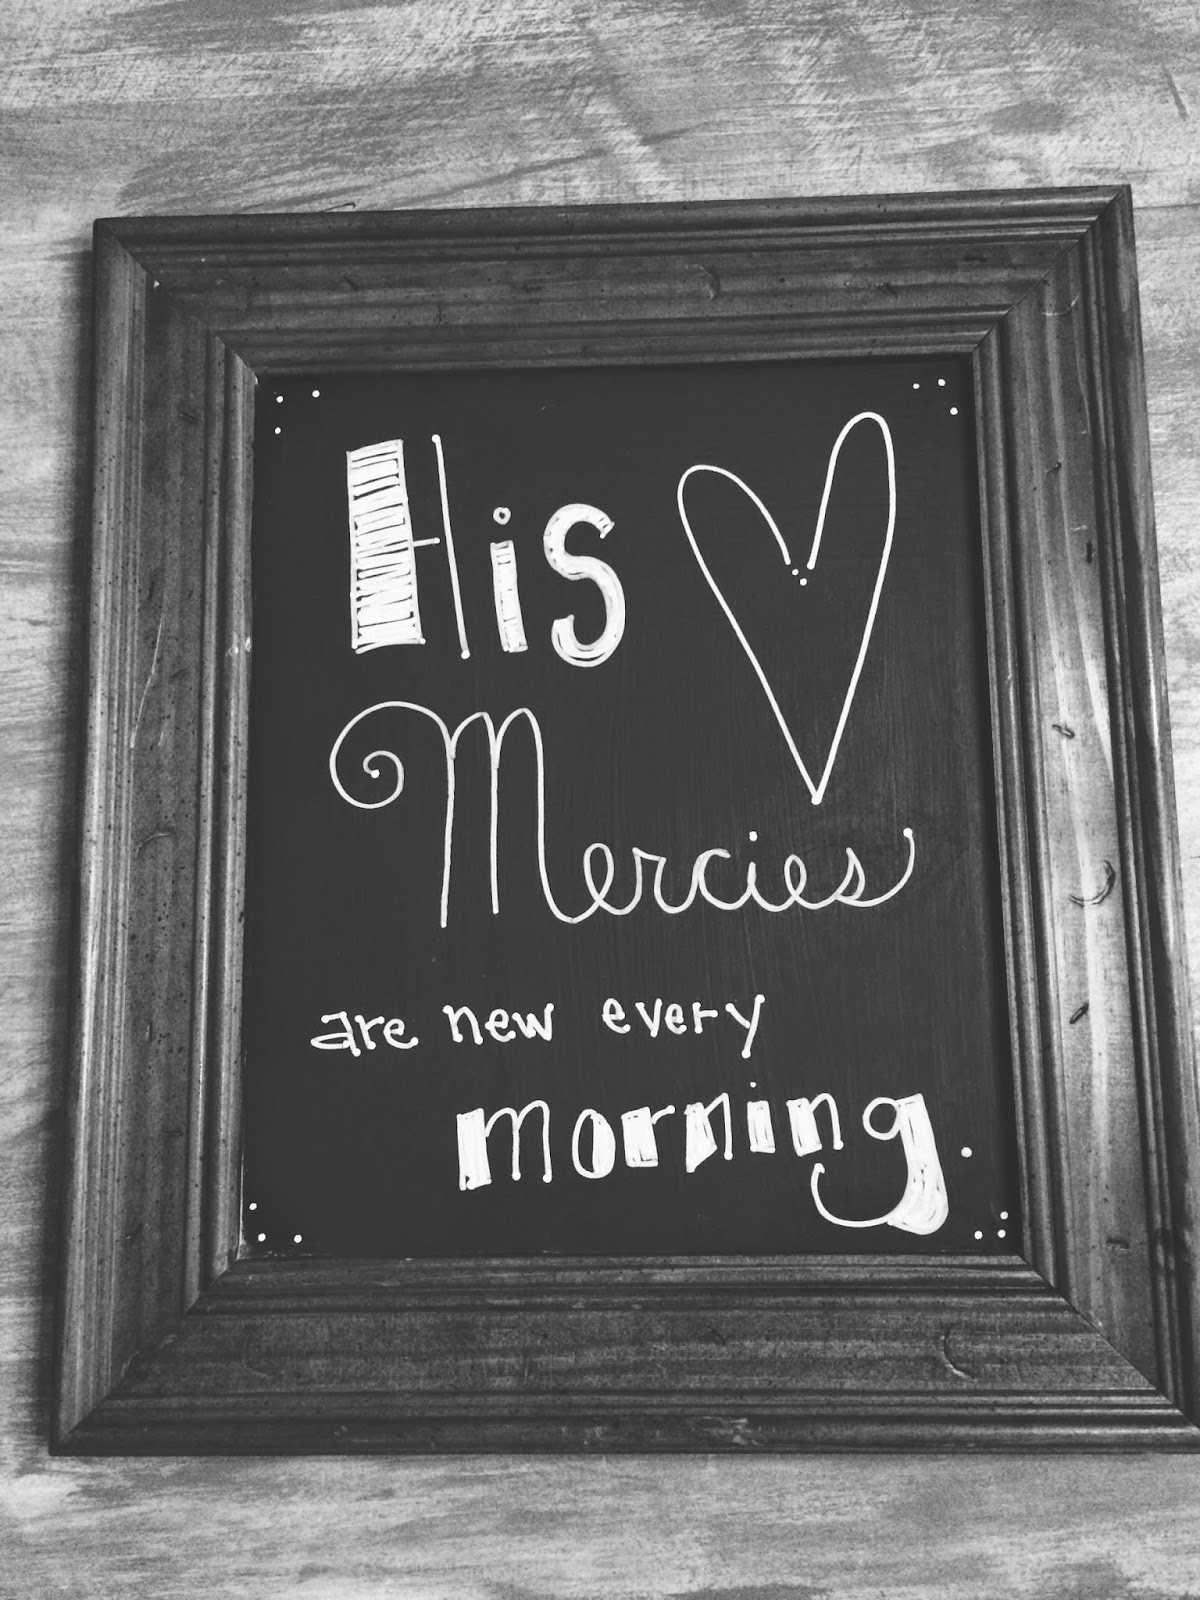 His
Mercies
are new every
morning.